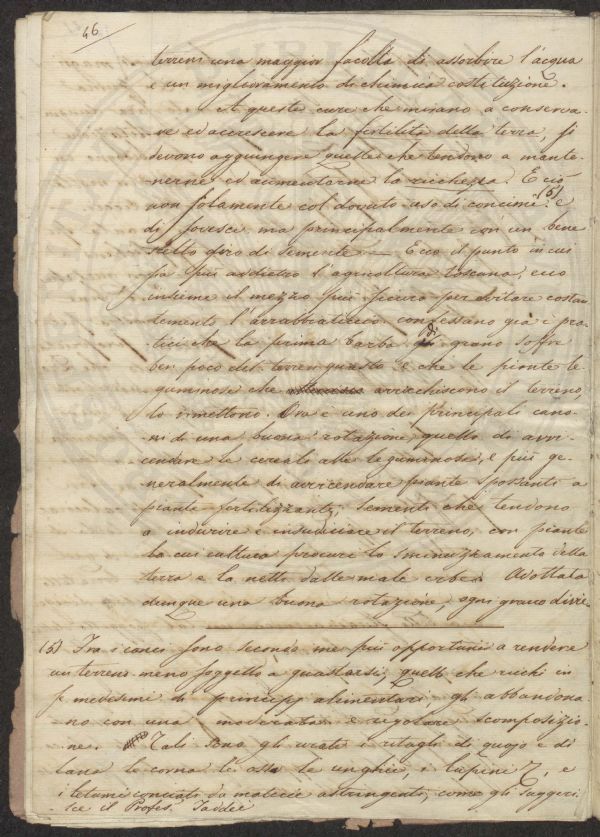 46
terreni una maggior facoltà di assorbire l'acqua
e un miglioramento di chimica costituzione.
A queste cure che mirano a conserva-
re ed accrescere la fertilità della terra, si
devono aggiungere quelle che tendono a mante-
nerne ed aumentarne la ricchezza. E ciò
non solamente col dovuto uso di concimi (5) e
di sovesce, ma principalmente con un bene
scelto giro di semente — Ecco il punto in cui
sta più addietro l'agricoltura toscana, ecco
insieme il mezzo più sicuro per evitare costan-
temente l'arrabbiaticcio. Confessano già i pra-
tici che la prima barba di grano soffre
ben poco del terren guasto e che le piante le-
guminose che arricchiscono il terreno,
lo rimettono. Ora è uno dei principali cano-
ni di una buona rotazione quello di avvi-
cendare le cereali alle leguminose, e più ge-
neralmente di avvicendare piante spossanti a
piante fertilizzanti; sementi che tendono
a indurire e insudiciare il terreno, con piante
la cui cultura procuri lo sminuzzamento della
terra e la netti dalle male erbe. Adottata
dunque una buona rotazione, ogni grano divie-
(5) Tra i conci sono secondo me più opportuni a rendere
un terreno meno soggetto a guastarsi, quelli che ricchi in
se medesimi di principj alimentari, gli abbandona-
no con una moderata e regolare scomposizio-
ne. Tali sono gli urati i ritagli di quojo e di
lana le corna le ossa le unghie, i lupini &, e
i letami conciati da materie astringenti, come gli suggeri-
sce il Profess. Taddei